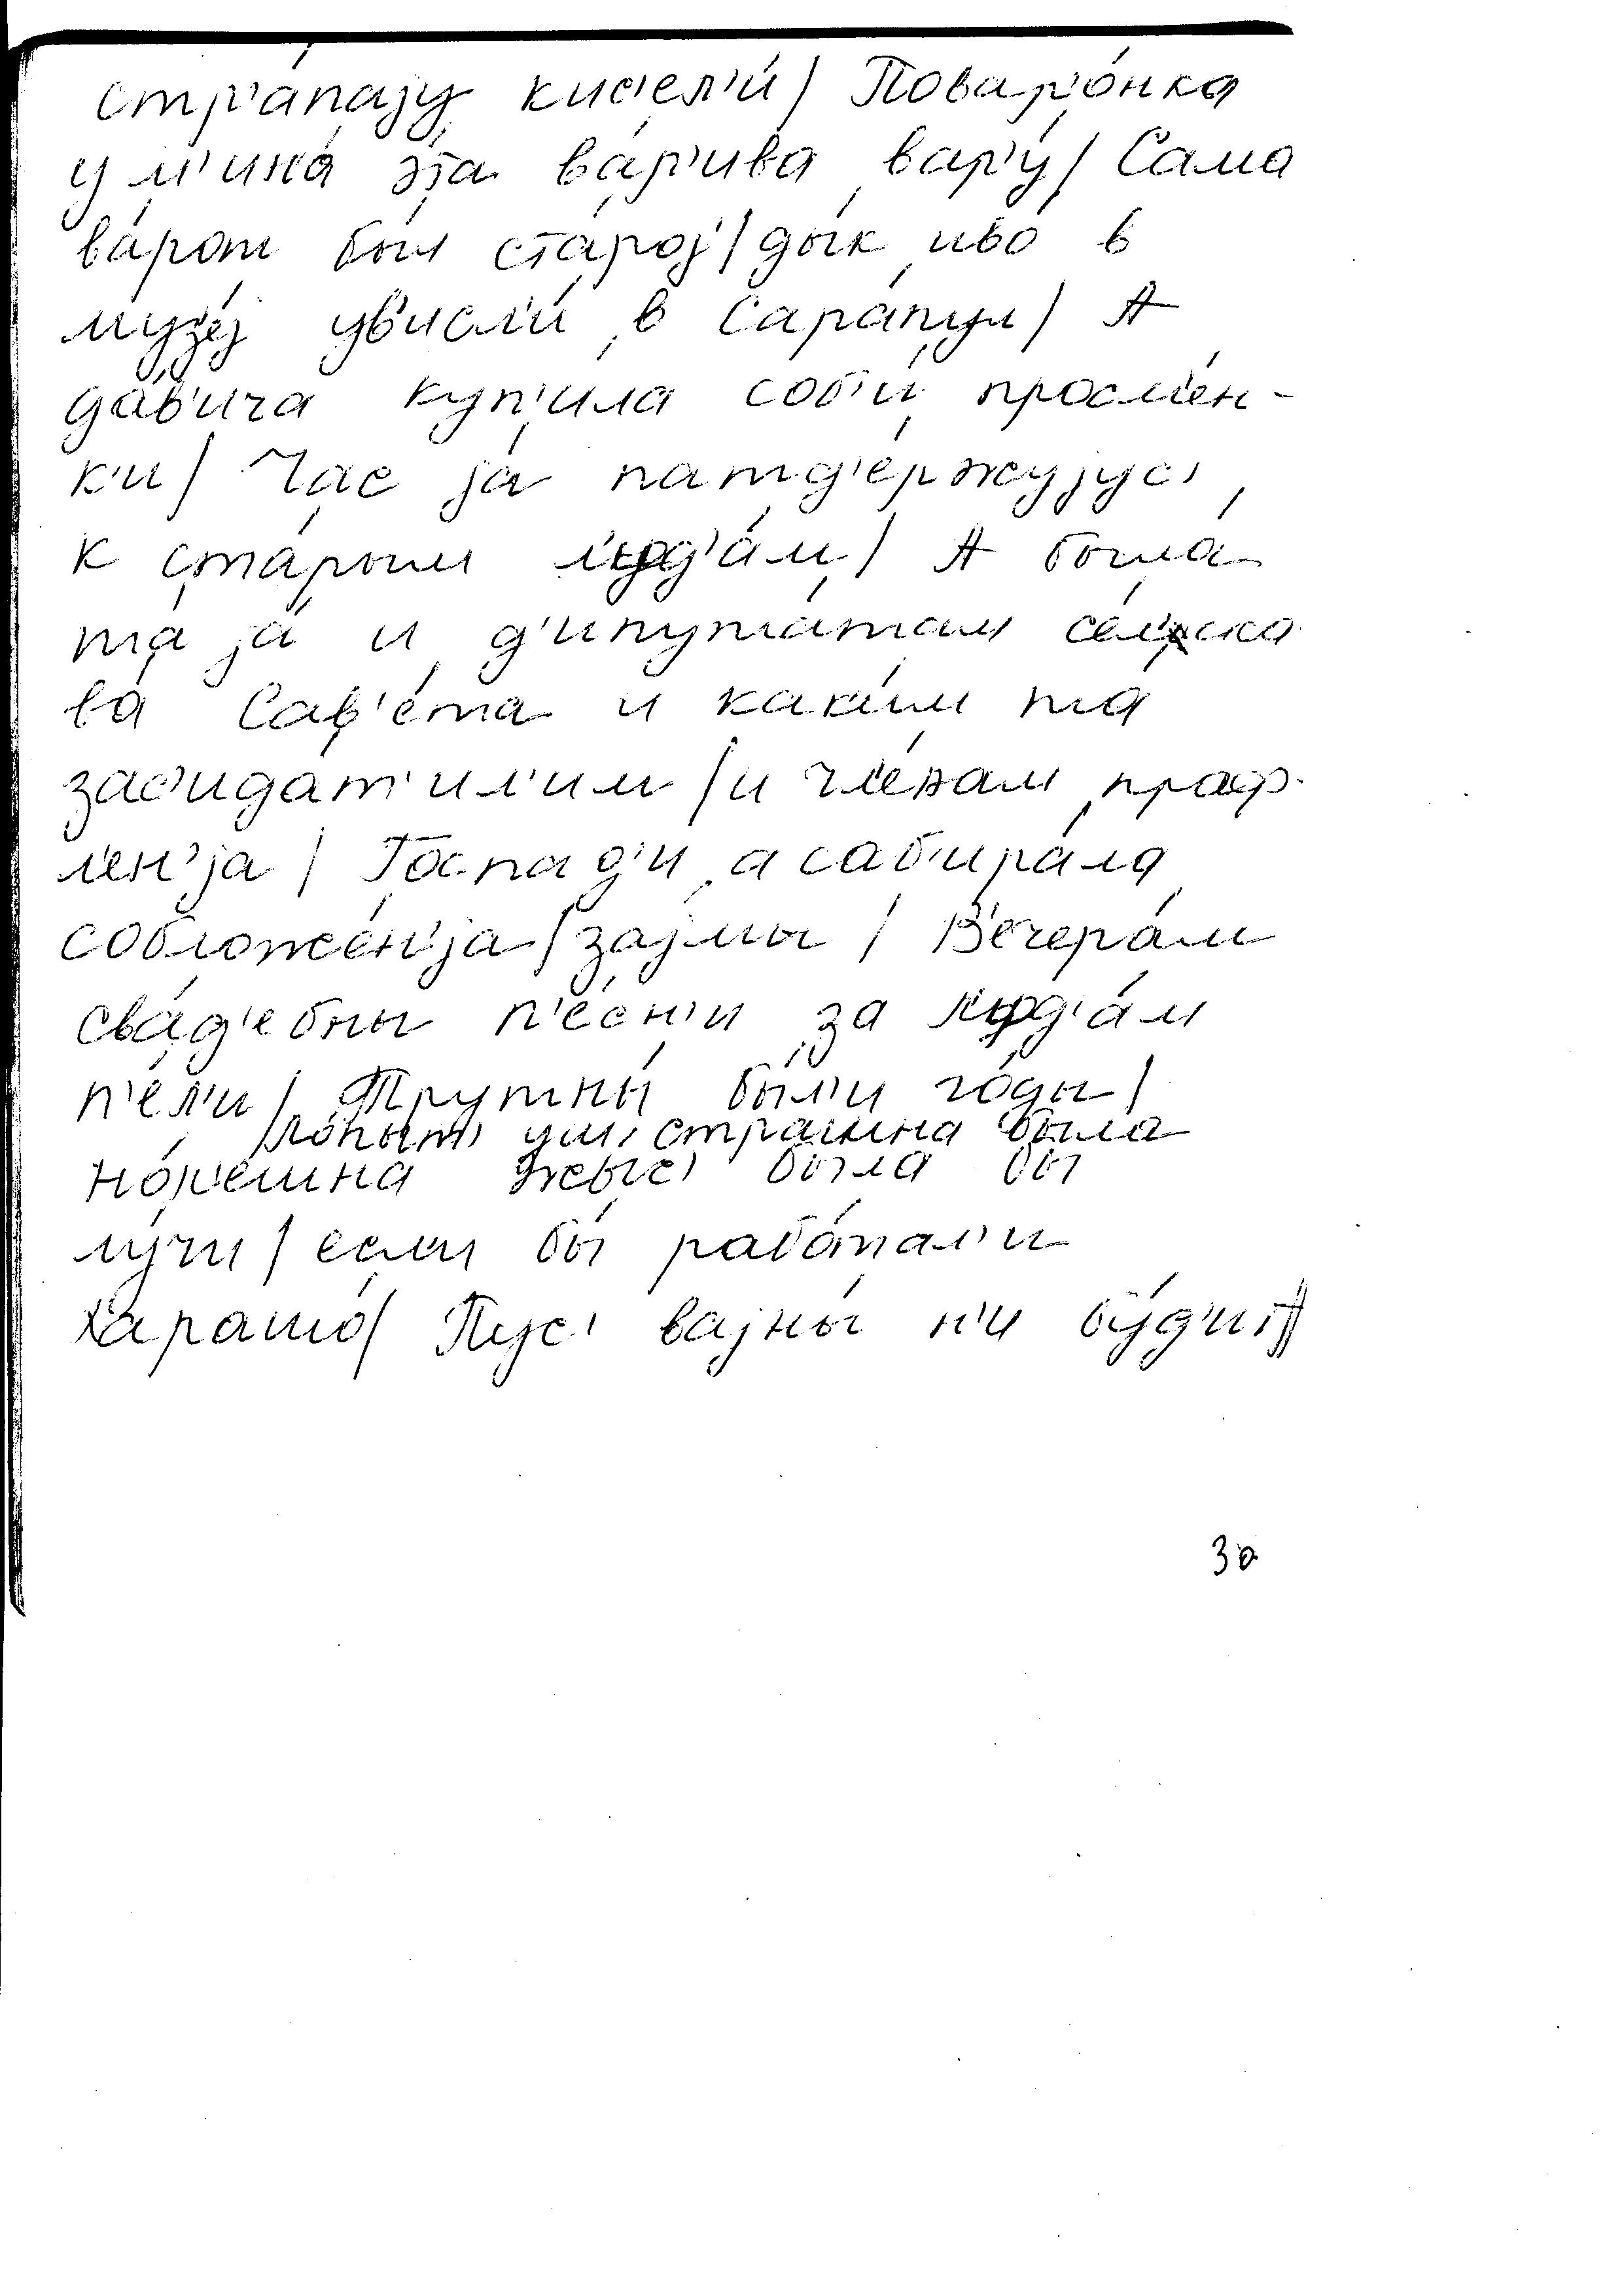 стр'а́пајy кис'ел'и́ / Повар'о́нка
у м'ина́ э́та ва́р'ива вар'у́ / Сама
ва́рот был ста́рој / дык иво́ в
музе́ј ув'изл'и́ в Сара́пул / А
да́в'ича куп'и́ла соб'и́ просм'е́н-
к'и / Час ја́ патд'е́ржујус'
к ста́рым л'уд'а́м / А была́
та ја́ и д'ипута́там се́л'ска
ва́ Сав'е́та и каки́м та
зас'ида́т'ил'им / и чл'е́нам праф
ле́н'ја / Го́спад'и а саб'ира́ла
соблож'е́н'ја / зајмы́ / В'ечера́м
сва́д'ебны п'е́сн'и за л'уд'а́м
п'е́л'и / Трутны́ бы́л'и го́ды /
ло́пыт' уш стра́шна была
но́н'ешна жыс' была́ бы
лу́чи / если бы рабо́тал'и
харашо́ / Пус' вајны́ н'и бу́д'ит //
30